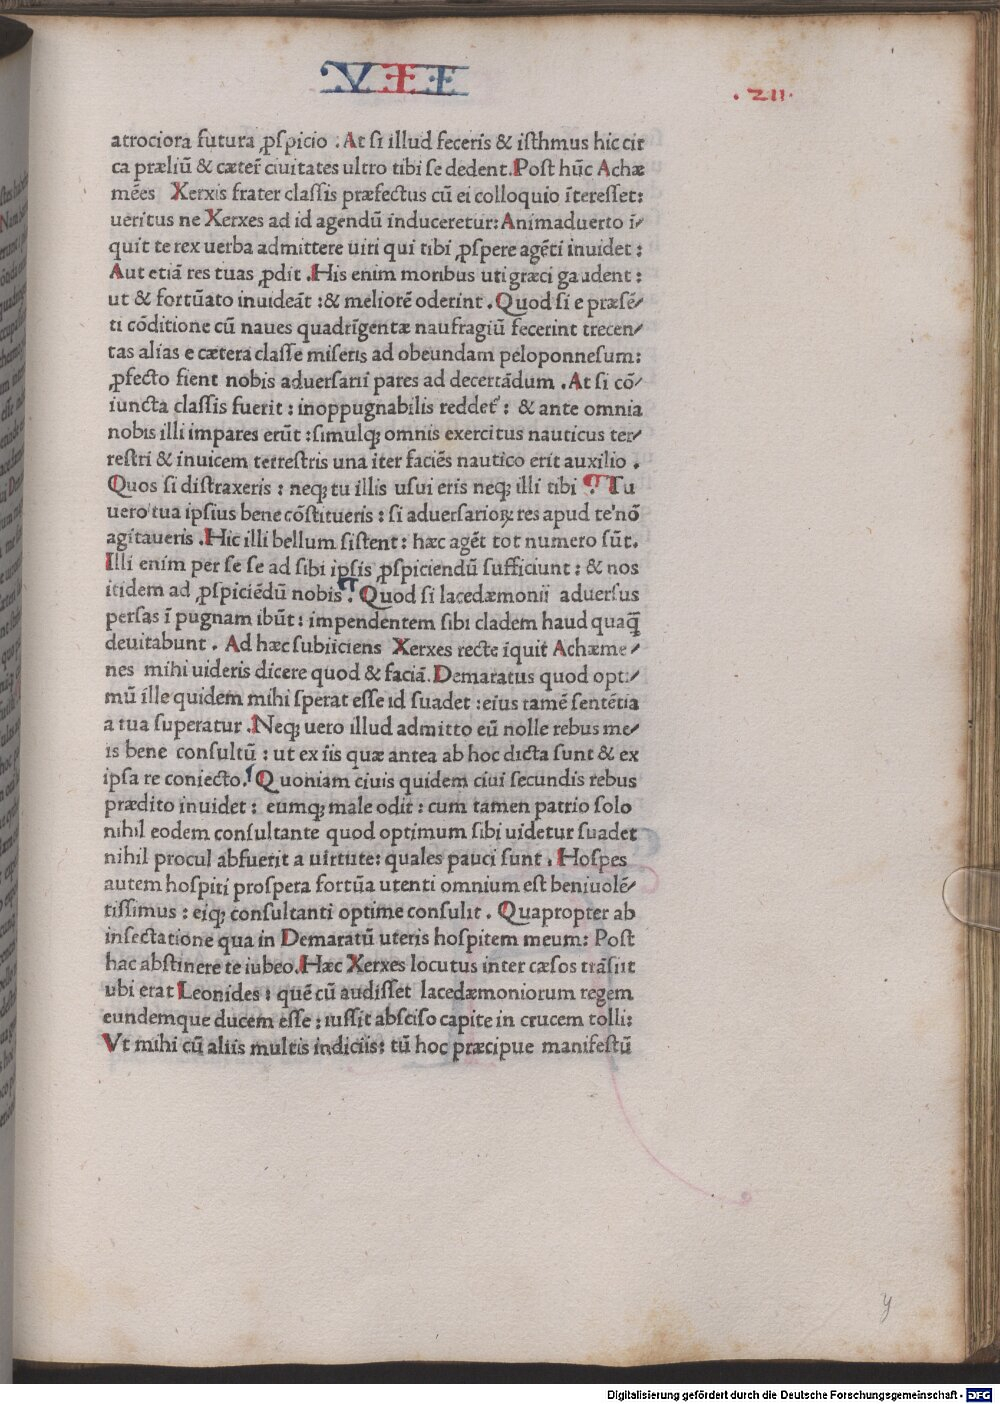 VII
.211.
atrociora futura ꝓspicio . At si illud feceris & isthmus hic cir
ca præliū & cæter̄ ciuitates ultro tibi se dedent. Post hūc Achæ
mēes Xerxis frater classis præfectus cū ei colloquio īteresset:
ueritus ne Xerxes ad id agendū induceretur: Animaduerto ī/
quit te rex uerba admittere uiri qui tibi ꝓspere agēti inuidet :
Aut etiā res tuas ꝓdit . His enim moribus uti græci gaudent :
ut & fortūato inuideāt : & meliorē oderint . Quod si e præsē/
ti cōditione cū naues quadrīgentæ naufragiū fecerint trecen/
tas alias e cætera classe miseris ad obeundam peloponnesum:
ꝓfecto fient nobis aduersarii pares ad decertādum . At si cō/
iuncta classis fuerit : inoppugnabilis reddet᷑ : & ante omnia
nobis illi impares erūt : simulqꝫ omnis exercitus nauticus ter/
restri & inuicem terrestris una iter faciēs nautico erit auxilio .
Quos si distraxeris : neqꝫ tu illis usui eris neqꝫ illi tibi . Tu
uero tua ipsius bene cōstitueris : si aduersarioꝝ res apud te nō
agitaueris . Hic illi bellum sistent : hæc agēt tot numero sūt.
Illi enim per se se ad sibi ipsis ꝓspiciendū sufficiunt : & nos
itidem ad ꝓspiciēdū nobis . Quod si lacedæmonii aduersus
persas ī pugnam ibūt : impendentem sibi cladem haud quaq̄
deuitabunt . Ad hæc subiiciens Xerxes recte īquit Achæme/
nes mihi uideris dicere quod & faciā. Demaratus quod opti/
mū ille quidem mihi sperat esse id suadet : eius tamē sentētia
a tua superatur . Neqꝫ uero illud admitto eū nolle rebus me/
is bene consultū : ut ex iis quæ antea ab hoc dicta sunt & ex
ipsa re coniecto. Quoniam ciuis quidem ciui secundis rebus
prædito inuidet : eumqꝫ male odit : cum tamen patrio solo
nihil eodem consultante quod optimum sibi uidetur suadet
nihil procul absuerit a uirtute: quales pauci sunt . Hospes
autem hospiti prospera fortūa utenti omnium est beniuolē/
tissimus : eiqꝫ consultanti optime consulit . Quapropter ab
insectatione qua in Demaratū uteris hospitem meum: Post
hac abstinere te iubeo. Hæc Xerxes locutus inter cæsos trāsiit
ubi erat Leonides : quē cū audisset lacedæmoniorum regem
eundemque ducem esse : iussit absciso capite in crucem tolli:
Vt mihi cū aliis multis indiciis: tū hoc præcipue manifestū
y
Digitalisierung gefördert durch die Deutsche Forschungsgemeinschaft - DFG